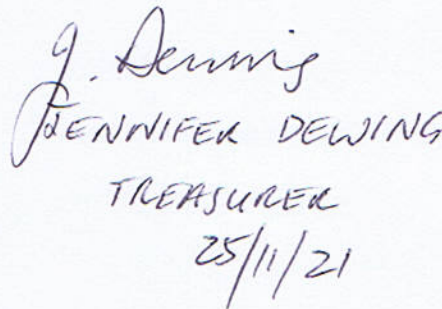 J. Dewing
JENNIFER DEWING
TREASURER
25/11/21